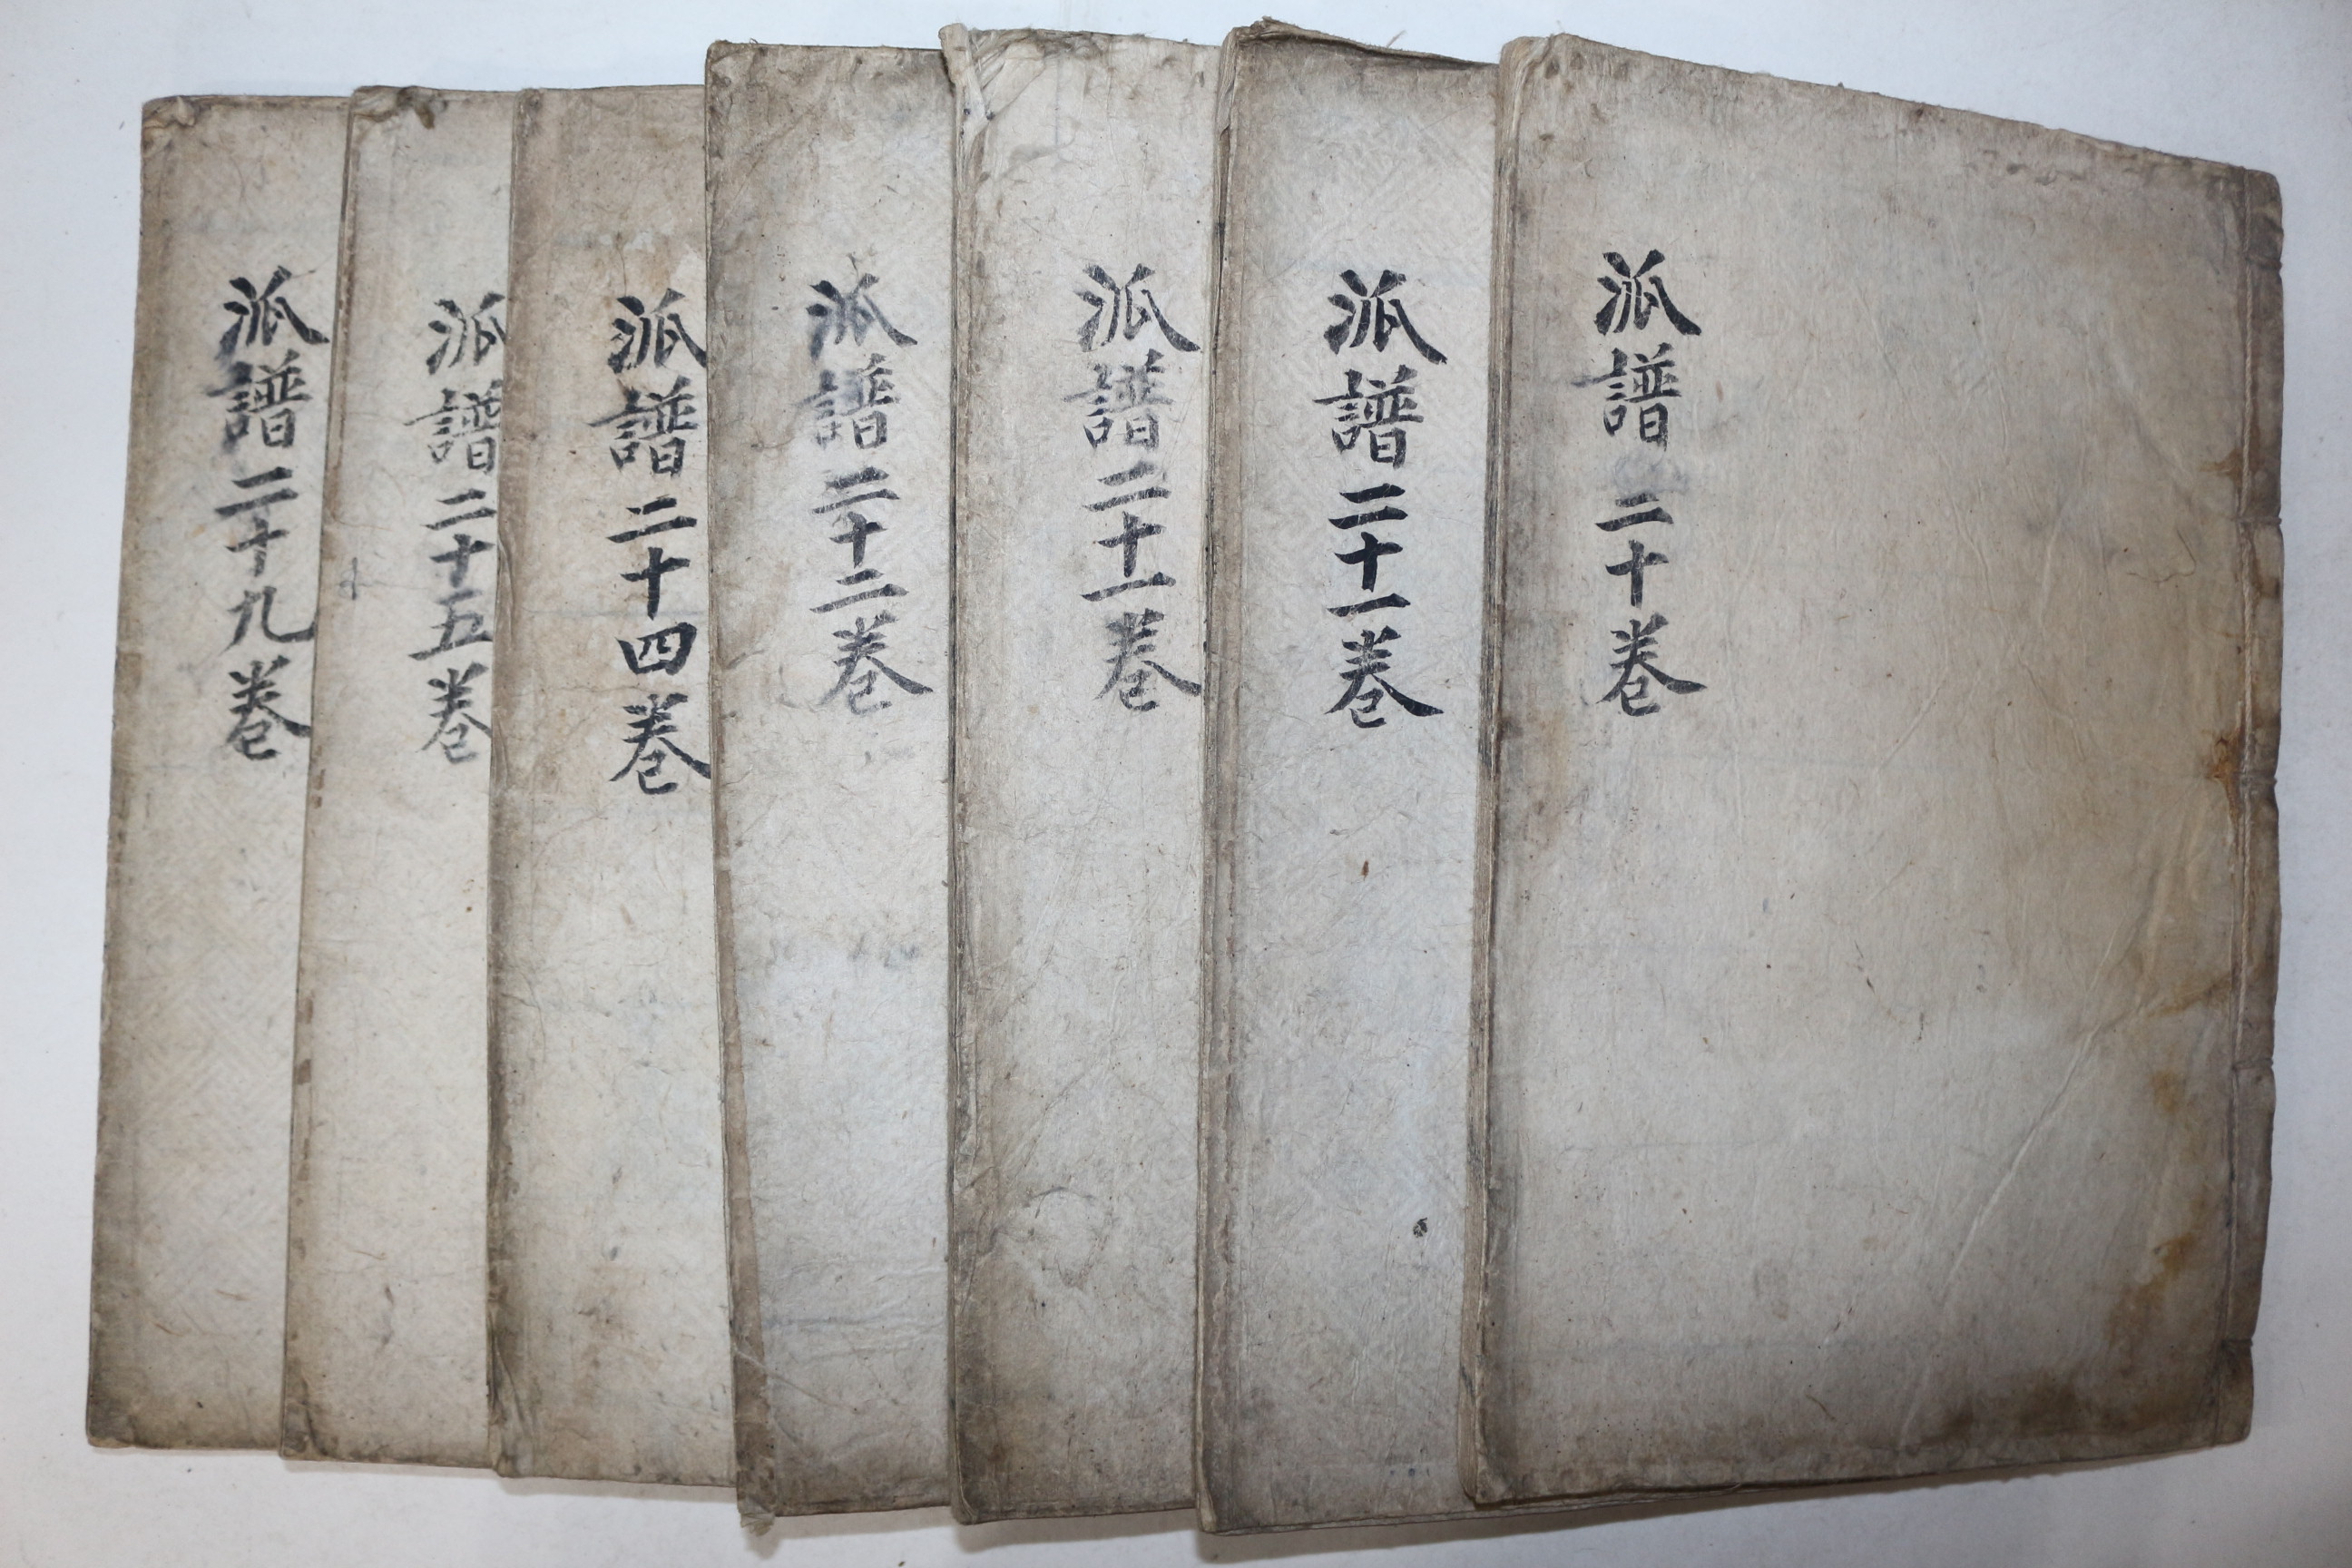 派譜 二十卷
派譜二十一卷
派譜二十一卷
派譜二十二卷
派譜二十四卷
派譜二十五卷
派譜二十九卷